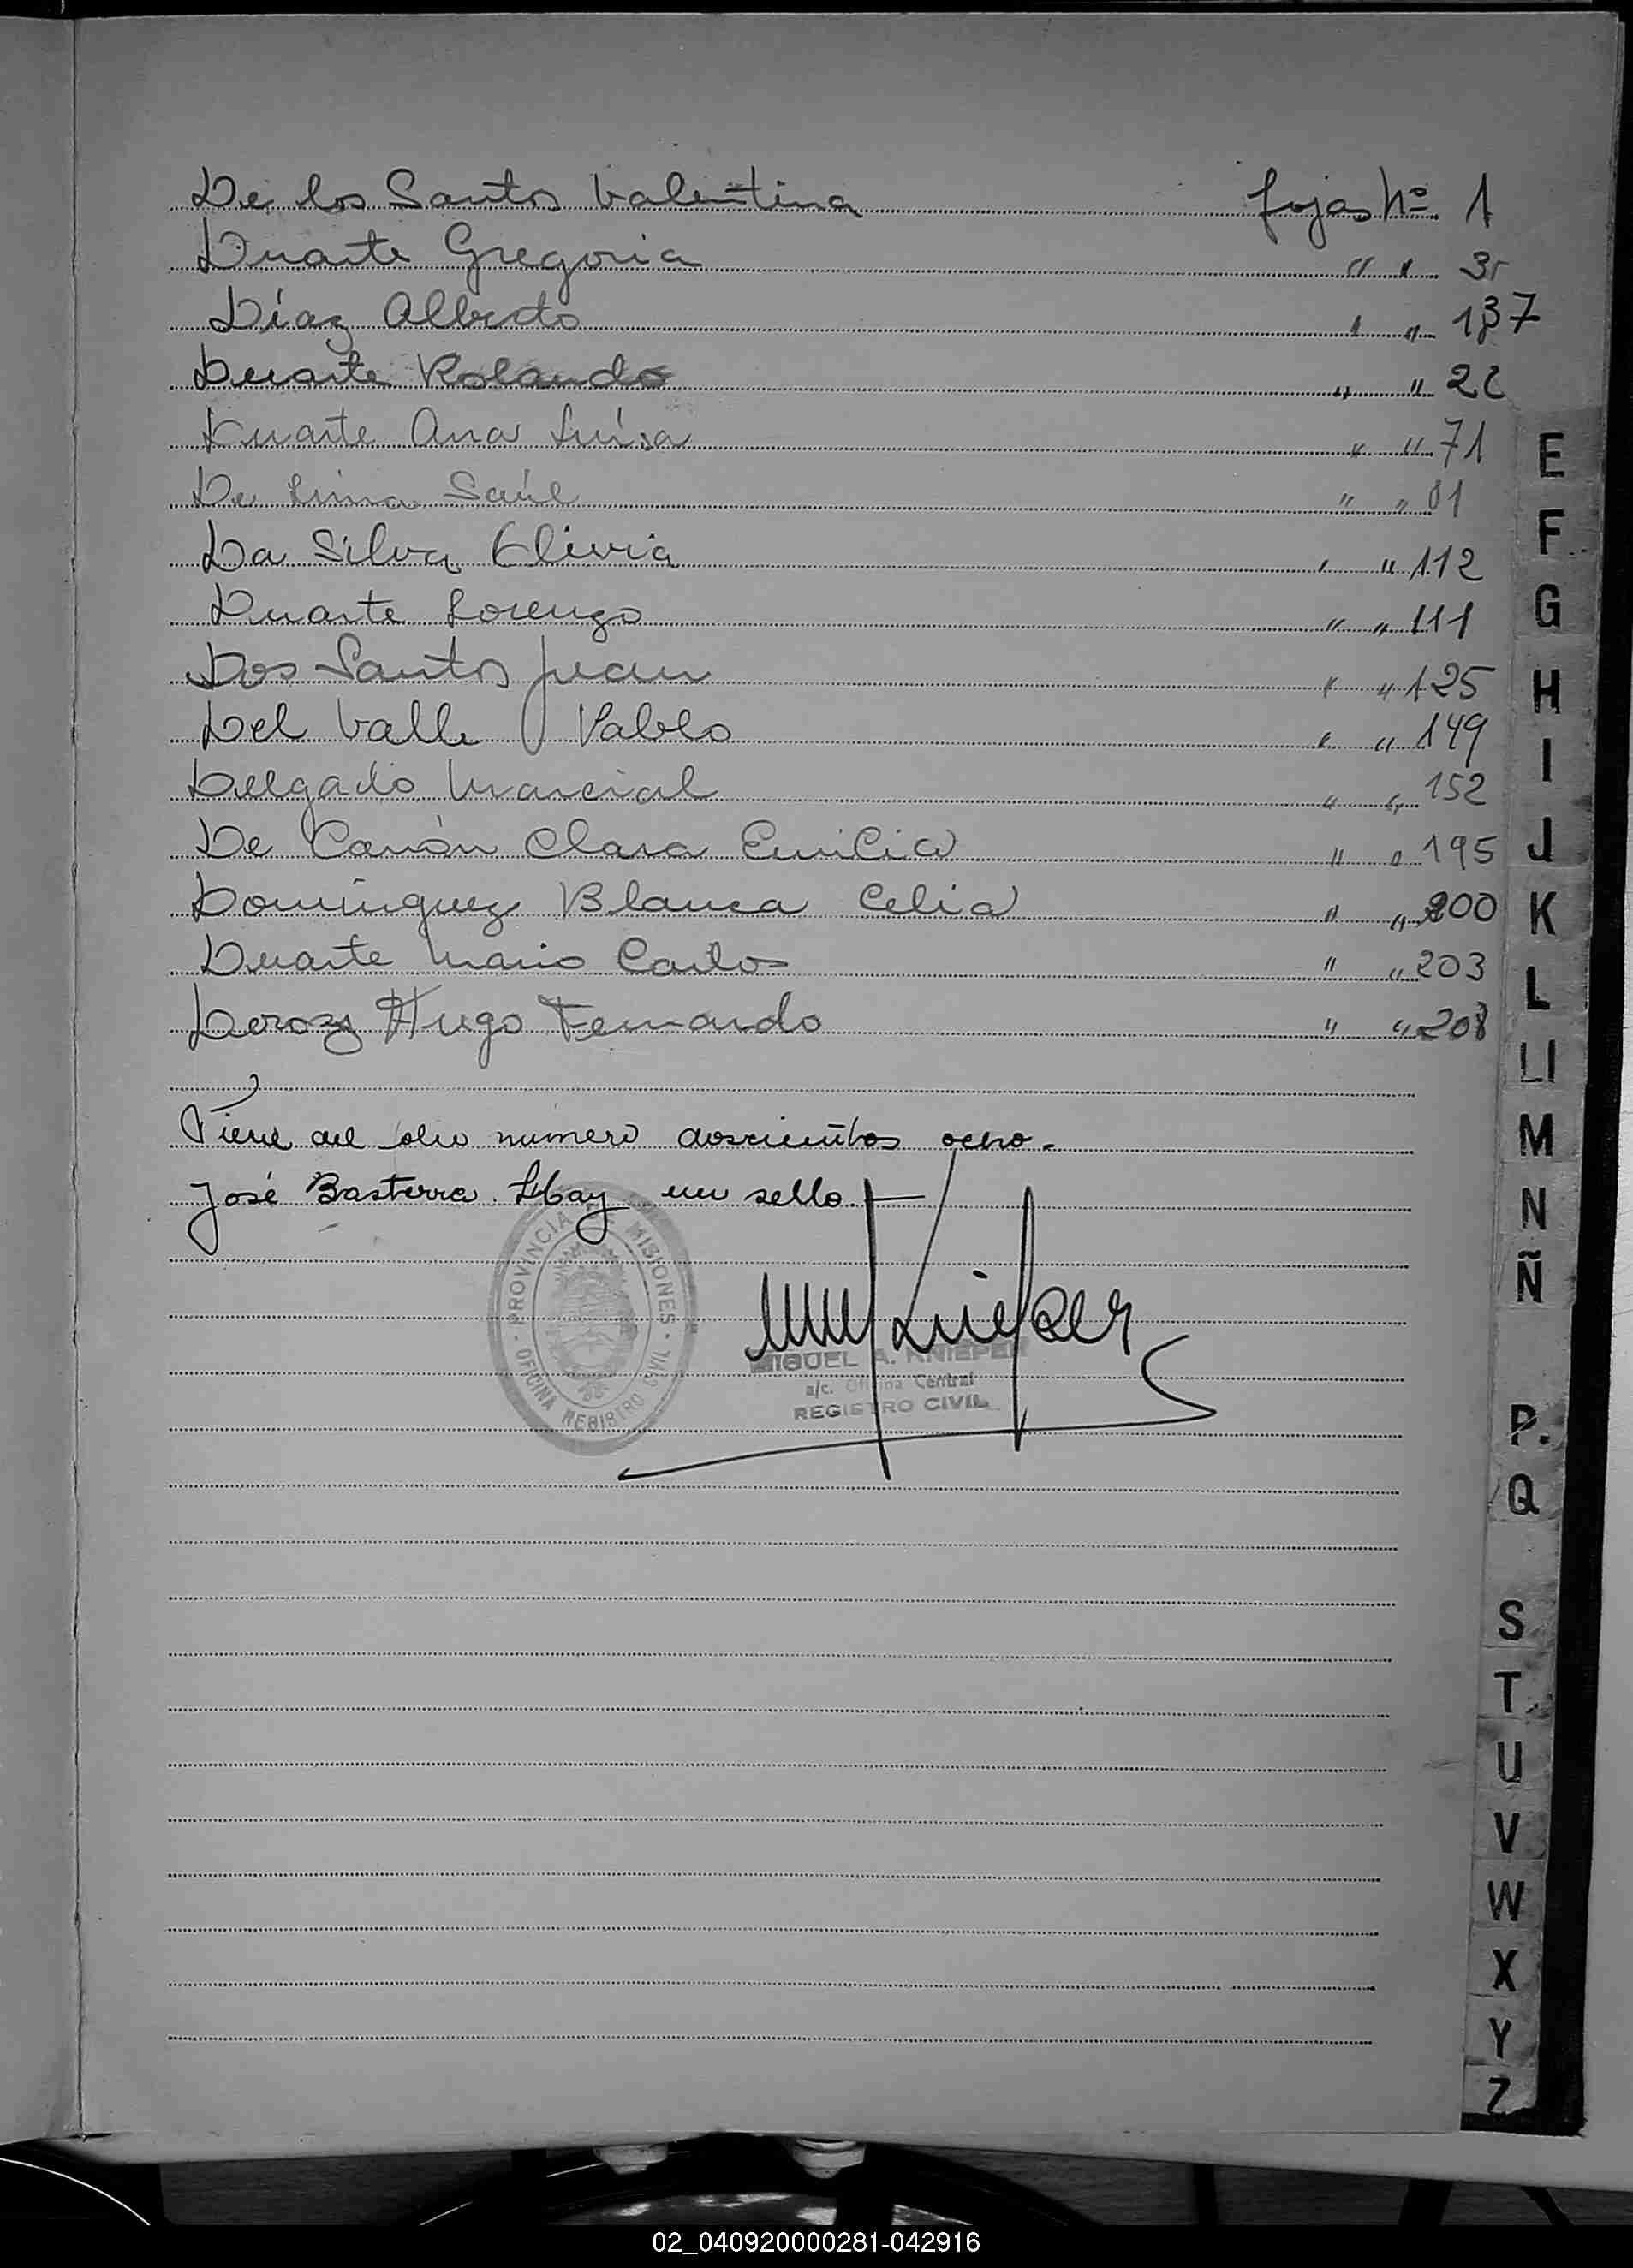 De los Santos Valentina fojas Nº 1
Duarte Gregoria " "
Díaz Alberto " " 137
Duarte Rolando " "
Duarte Ana Luísa " " 71
De Lima Saúl " "
Da Silva Elivia " " 112
Duarte Lorenzo " " 111
Dos Santos Juan " " 125
Del Valle Pablo " " 149
Delgado Marcial " " 152
De Carión Clara Emilia " " 195
Dominguez Blanca Celia " " 200
Duarte Mario Carlos " " 203
Deroz Hugo Fernando " " 208
Viene del folio numero doscientos ocho.
José Basterra. Hay un sello.
PROVINCIA DE MISIONES · OFICINA REGISTRO CIVIL ·
MIGUEL A. KNIEPER
a/c. Oficina Central
REGISTRO CIVIL
E
F
G
H
I
J
K
L
Ll
M
N
Ñ
P.
Q
S
T
U
V
W
X
Y
Z
02_040920000281-042916